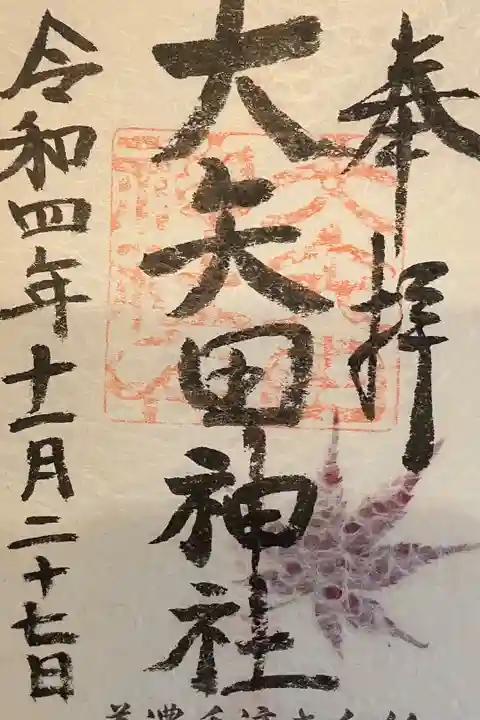 奉拝
大矢田神社
令和四年十一月二十七日